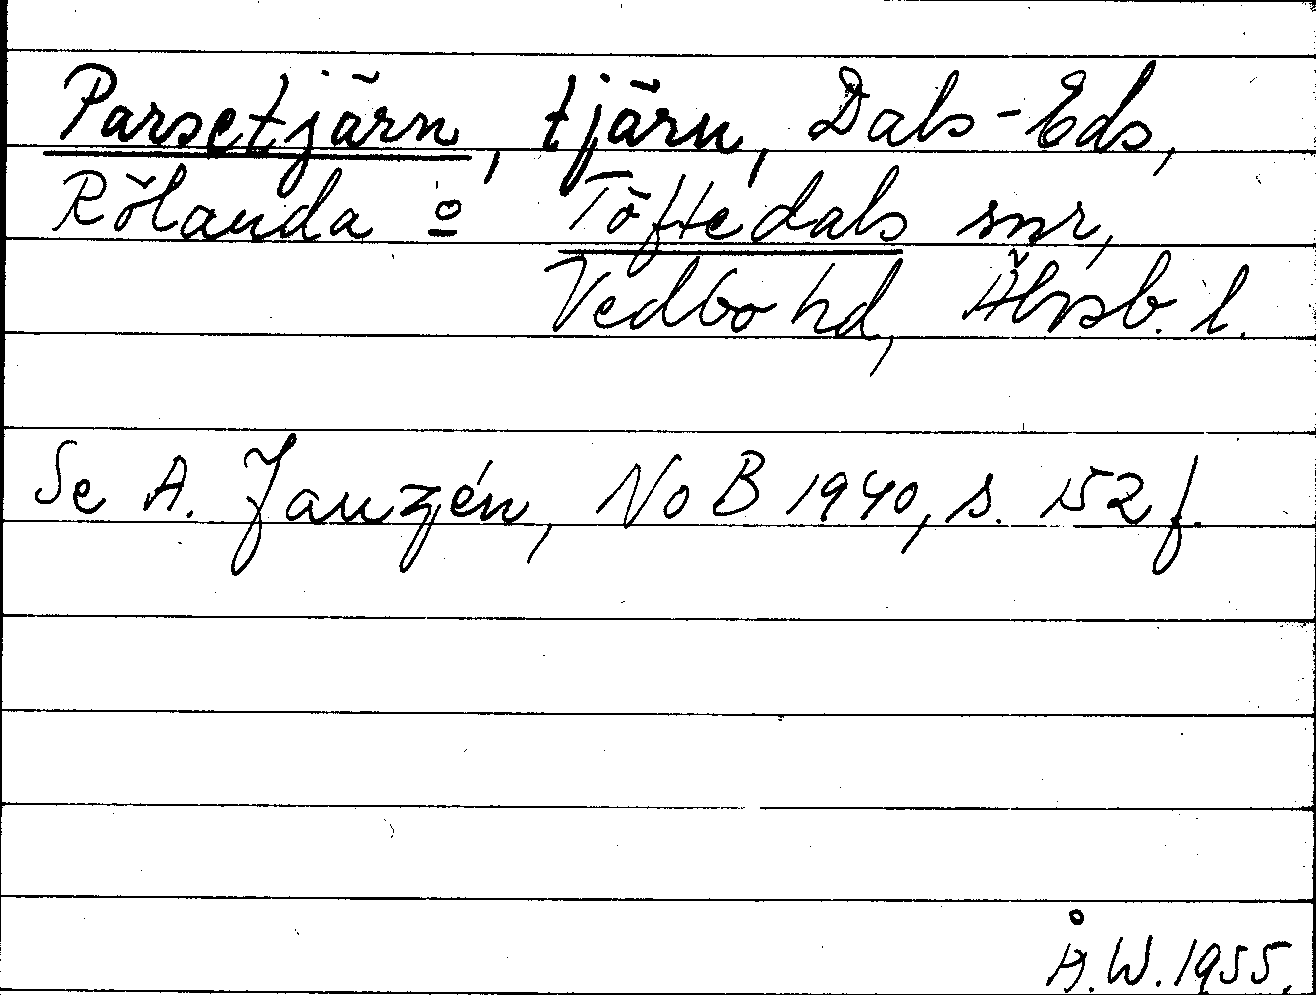 Parsetjärn, tjärn, Dals-Eds,
Rölanda o Töftedals snr,
Vedbo hd, Älvsb. l.
Se A. Janzén, NoB 1940, s. 152 f.
Å.W. 1955.